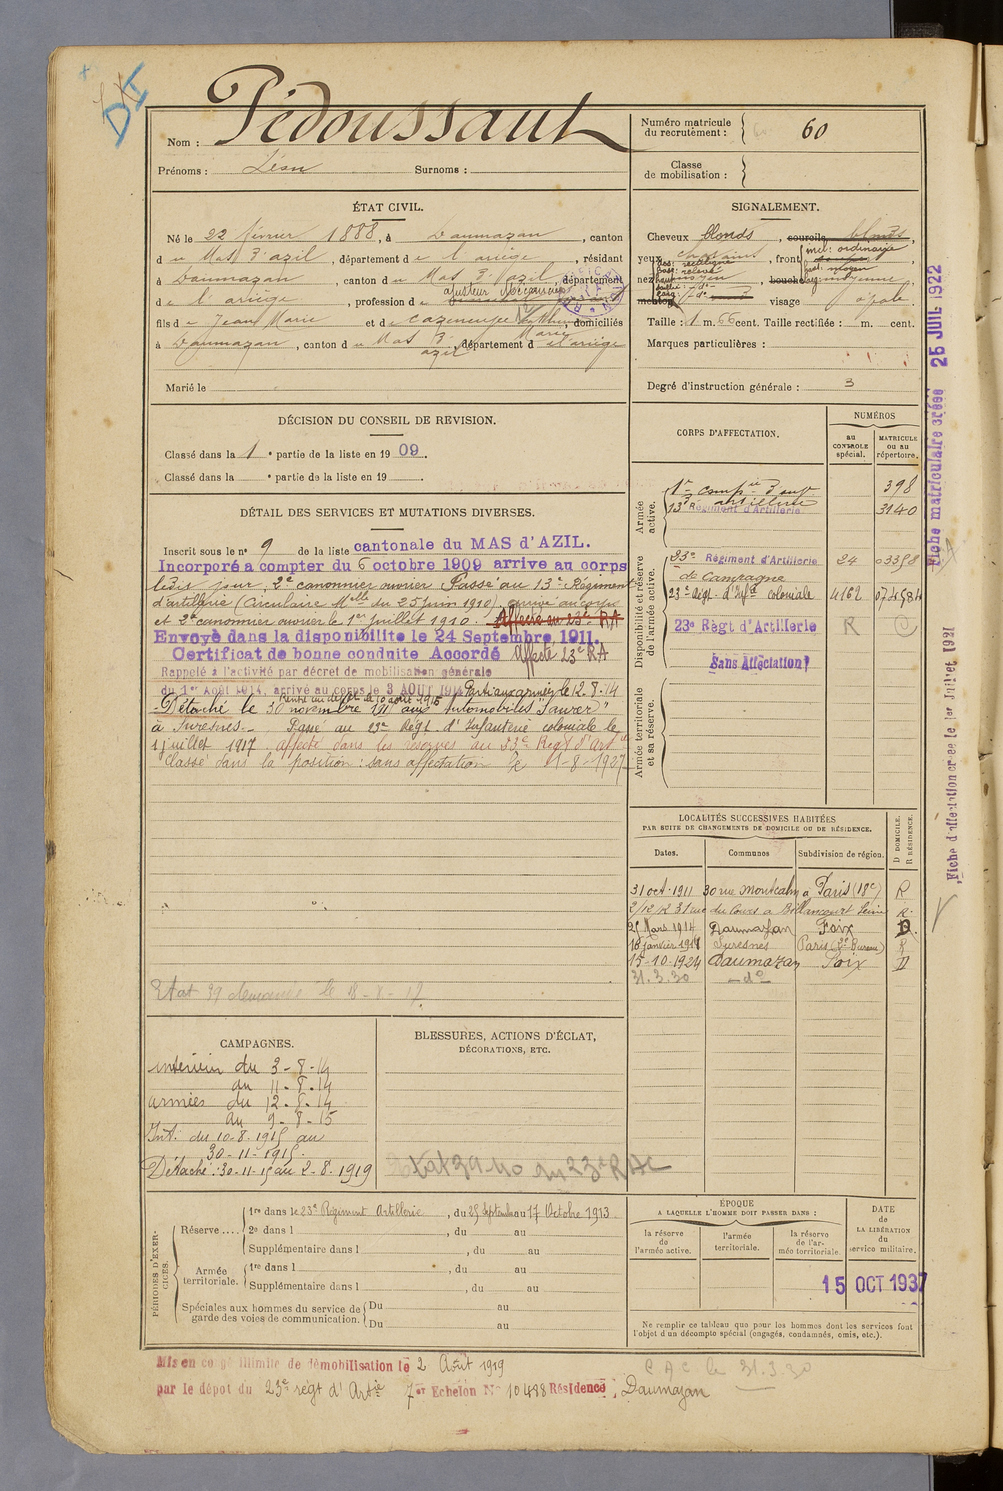 DI
Nom : Pédoussaut
Prénoms : Léon Surnoms :
Numéro matricule du recrutement : 60
Classe de mobilisation :
ÉTAT CIVIL.
Né le 22 février 1888, à Daumazan, canton
du Mas d'azil, département de l'ariège, résidant
à Daumazan, canton du Mas d'azil, département
de l'ariège, profession d ajusteur Mécanicien
fils de Jean Marie et de Cazeneuve Marie, domiciliés
à Daumazan, canton du Mas d'azil, département d l'ariège
Marié le
SIGNALEMENT.
Cheveux blonds, sourcils blonds,
yeux front
nez bouche
menton visage
Taille : 1 m. 66 cent. Taille rectifiée : m. cent.
Marques particulières :
Degré d'instruction générale : 3
DÉCISION DU CONSEIL DE REVISION.
Classé dans la 1e partie de la liste en 1909.
Classé dans la e partie de la liste en 19
DÉTAIL DES SERVICES ET MUTATIONS DIVERSES.
Inscrit sous le n° 9 de la liste cantonale du MAS d'AZIL.
Incorporé a compter du 6 octobre 1909 arrive au corps
ledit jour, 2e canonnier ouvrier Passé au 13e Régiment
d'artillerie (Circulaire Mlle du 25 juin 1910) arrivé au corps
et 2e canonnier ouvrier le 1er juillet 1910. Affecté au 23e RA
Envoyé dans la disponibilite le 24 Septembre 1911.
Certificat de bonne conduite Accordé Affecté 23e RA
Rappelé à l'activité par décret de mobilisation générale
du 1er Août 1914, arrivé au corps le 3 AOUT 1914 Parti aux armées le 12.8.14
Rentré au dépôt le 10 août 1915
Détaché le 30 novembre 1915 aux automobiles "Saurer"
à Suresnes. Passé au 23e Régt. d'Infanterie coloniale le
1 juillet 1917. affecté dans les réserves au 23e Régt d'Artie
Classé dans la position : sans affectation le 1-8-1927
Etat 39 demandé le 18-8-17
CORPS D'AFFECTATION.
NUMÉROS
au CONTROLE spécial.
MATRICULE ou au répertoire.
Armée active.
398
13e Régiment d'Artillerie 3140
Disponibilité et réserve de l'armée active.
23e Régiment d'Artillerie 24 03398
de Campagne
23e Régt. d'Infie coloniale 4162
23e Règt d'Artillerie R
Sans Affectation
Armée territoriale et sa réserve.
LOCALITÉS SUCCESSIVES HABITÉES
PAR SUITE DE CHANGEMENTS DE DOMICILE OU DE RÉSIDENCE.
Dates. Communes Subdivision de région. D DOMICILE. R RÉSIDENCE.
31 oct. 1911 30 rue Montcalm a Paris (18e) R
2/12/12 31 rue du Cours a Billancourt Seine R.
25 Mars 1914 Daumazan Foix D.
18 janvier 1918 Suresnes Paris (2e Bureau) R
15-10-1924 Daumazan Foix D
31.3.30 — do
CAMPAGNES.
intérieur du 3-8-14
au 11-8-14
armées du 12-8-14
au 9-8-15
Int. du 10-8-1915 au
30-11-1915.
Détaché : 30-11-15 au 2-8-1919
BLESSURES, ACTIONS D'ÉCLAT,
DÉCORATIONS, ETC.
PÉRIODES D'EXERCICES.
Réserve .... 1re dans le 23e Régiment Artillerie, du 25 Septembre au 17 Octobre 1913.
2e dans l , du au
Supplémentaire dans l , du au
Armée territoriale. 1re dans l , du au
Supplémentaire dans l , du au
Spéciales aux hommes du service de garde des voies de communication. Du au
Du au
ÉPOQUE
A LAQUELLE L'HOMME DOIT PASSER DANS :
la réserve de l'armée active.
l'armée territoriale.
la réserve de l'armée territoriale.
DATE de LA LIBÉRATION du service militaire.
15 OCT 1937
Ne remplir ce tableau que pour les hommes dont les services font
l'objet d'un décompte spécial (engagés, condamnés, omis, etc.).
Mis en congé illimité de démobilisation le 2 Août 1919
par le dépôt du 23e régt d'Artie 7me Echelon N° 10488 Résidence : Daumazan
C A C le 31.3.30
Fiche matriculaire créée 25 JUIL 1922
Fiche d'affectation créée le 1er Juillet 1921